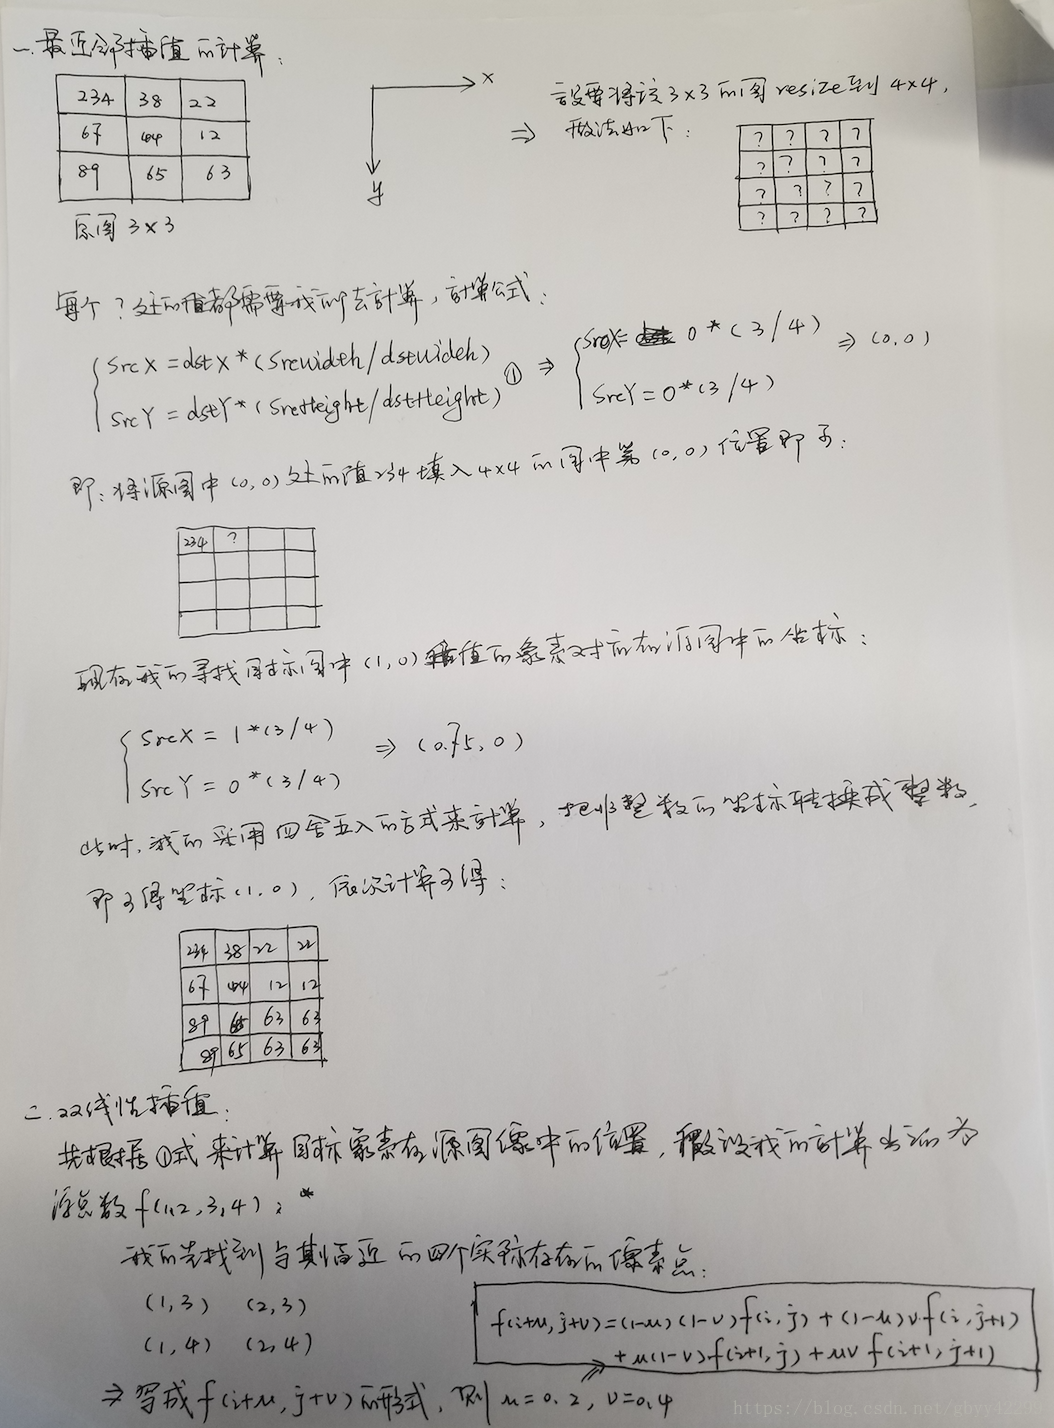 一.最近邻插值的计算:
234 38 22
67 44 12
89 65 63
原图 3×3
x
y
⇒
设要将该3×3的图resize到4×4,
做法如下:
? ? ? ?
? ? ? ?
? ? ? ?
? ? ? ?
每个?处的值都需要我们去计算,计算公式:
SrcX=dstX*(Srcwidth/dstwideh)
SrcY=dstY*(SrcHeight/dstHeight) ①
⇒ SrcX= 0*(3/4)
SrcY=0*(3/4)
⇒(0,0)
即:将源图中(0,0)处的值234填入4×4的图中第(0,0)位置即可:
234 ?
现在我们寻找目标图中(1,0)值的象素对应在源图中的坐标:
SrcX = 1*(3/4)
SrcY = 0*(3/4)
⇒ (0.75,0)
此时,我们采用四舍五入的方式来计算,把非整数的坐标转换成整数,
即可得坐标(1,0),依次计算可得:
234 38 22 22
67 44 12 12
89 65 63 63
89 65 63 63
二.双线性插值:
先根据①式来计算目标象素在源图像中的位置,假设我们计算出来的为
浮点数f(1.2,3.4);
我们先找到与其临近的四个实际存在的像素点:
(1,3) (2,3)
(1,4) (2,4)
f(i+u,j+v)=(1-u)(1-v)f(i,j)+(1-u)v.f(i,j+1)
+u(1-v)f(i+1,j)+uv f(i+1,j+1)
⇒ 写成f(i+u,j+v)的形式,则u=0.2,v=0.4